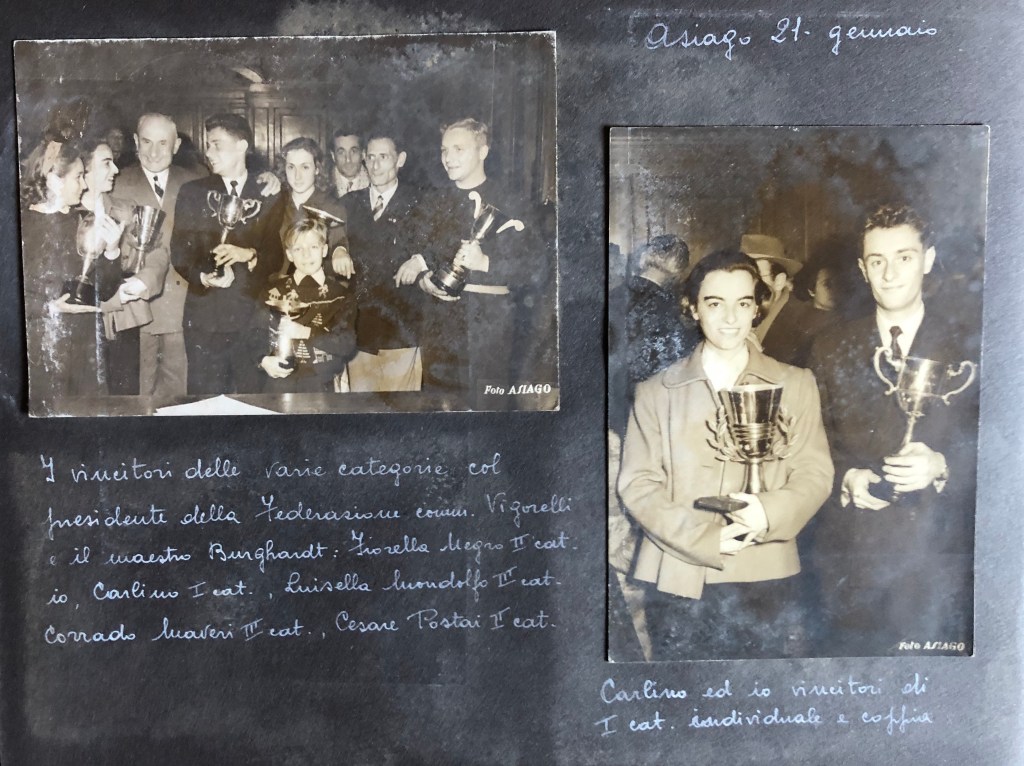 Asiago 21. gennaio
Foto ASIAGO
I vincitori delle varie categorie col
presidente della Federazione comm. Vigorelli
e il maestro Burghardt: Fiorella Negro II cat.
io, Carlino I cat., Luisella Mondolfo III cat.
Corrado Maveri III cat., Cesare Postai II cat.
Foto ASIAGO
Carlino ed io vincitori di
I cat. individuale e coppia